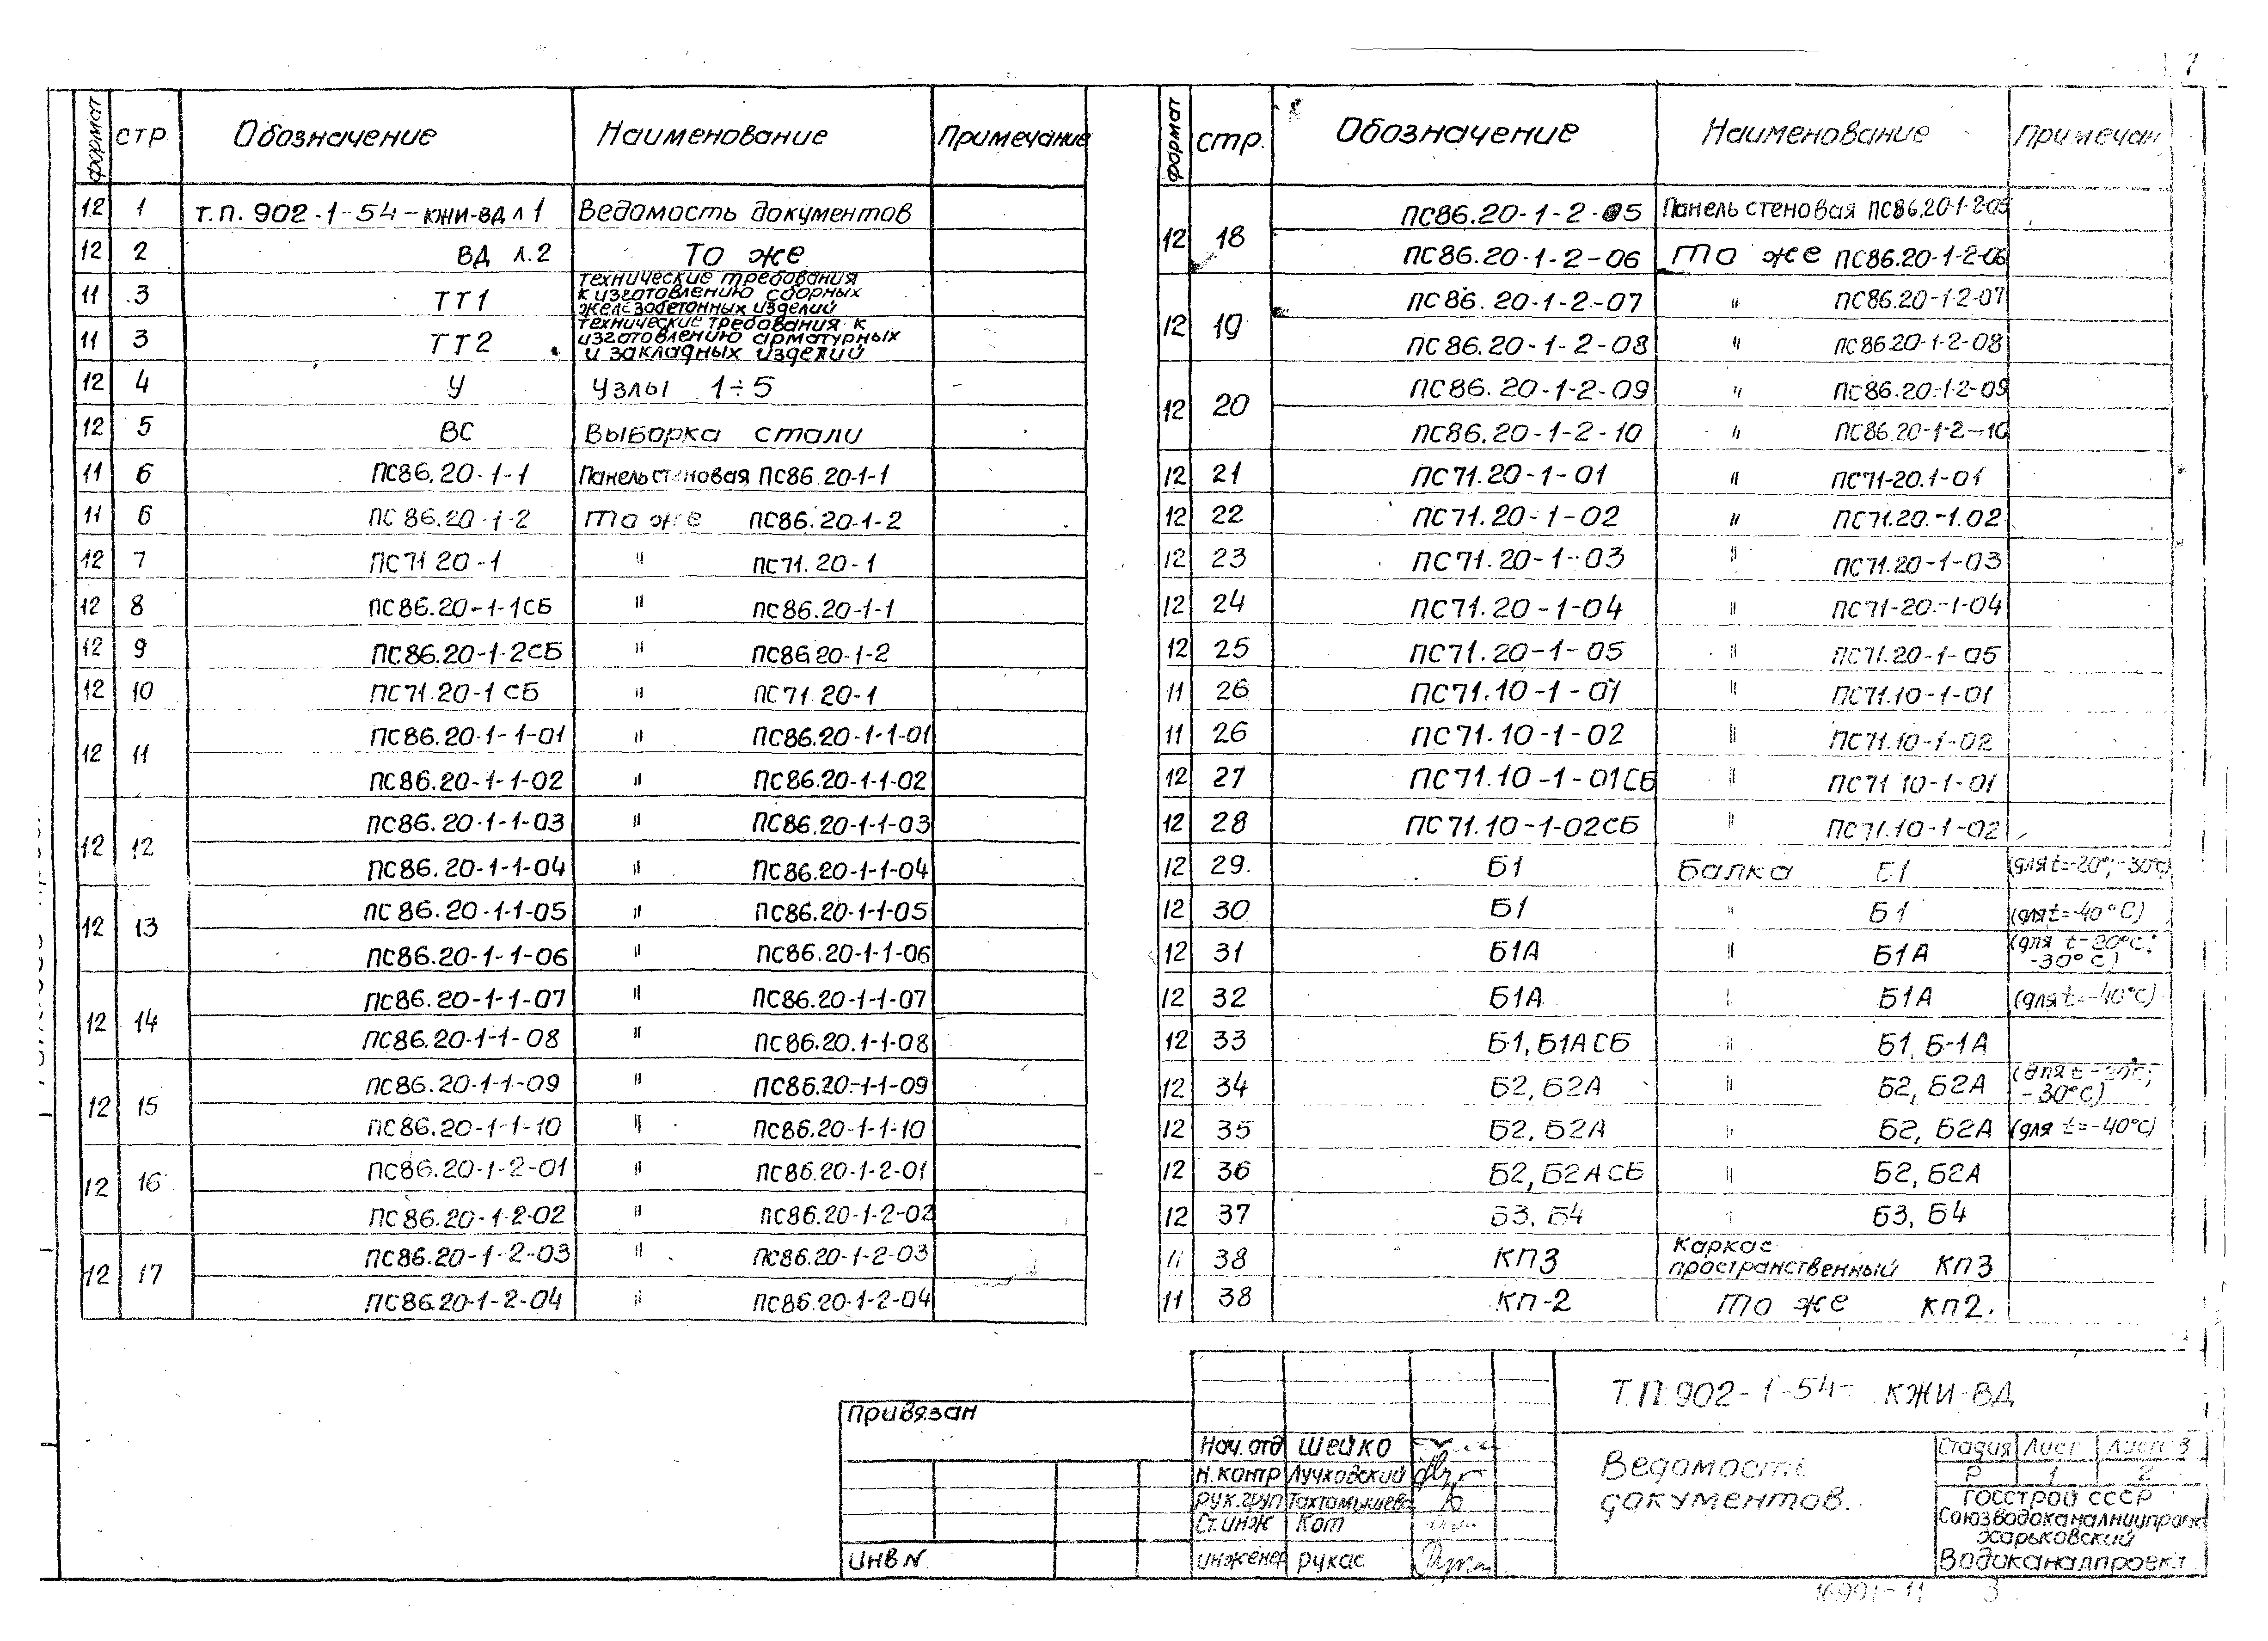 1
формат стр Обозначение Наименование Примечание
12 1 Т.П. 902-1-54-КЖИ-ВД л 1 Ведомость документов
12 2 ВД л.2 То же
11 3 ТТ1 технические требования
к изготовлению сборных
железобетонных изделий
11 3 ТТ2 технические требования к
изготовлению арматурных
и закладных изделий
12 4 У Узлы 1÷5
12 5 ВС Выборка стали
11 6 ПС86.20-1-1 Панель стеновая ПС86.20-1-1
11 6 ПС86.20-1-2 То же ПС86.20-1-2
12 7 ПС71 20-1 " ПС71.20-1
12 8 ПС86.20-1-1СБ " ПС86.20-1-1
12 9 ПС86.20-1-2СБ " ПС86 20-1-2
12 10 ПС71.20-1 СБ " ПС71.20-1
12 11 ПС86.20-1-1-01 " ПС86.20-1-1-01
ПС86.20-1-1-02 " ПС86.20-1-1-02
12 12 ПС86.20-1-1-03 " ПС86.20-1-1-03
ПС86.20-1-1-04 " ПС86.20-1-1-04
12 13 ПС86.20-1-1-05 " ПС86.20-1-1-05
ПС86.20-1-1-06 " ПС86.20-1-1-06
12 14 ПС86.20-1-1-07 " ПС86.20-1-1-07
ПС86.20-1-1-08 " ПС86.20.1-1-08
12 15 ПС86.20-1-1-09 " ПС86.20-1-1-09
ПС86.20-1-1-10 " ПС86.20-1-1-10
12 16 ПС86.20-1-2-01 " ПС86.20-1-2-01
ПС86.20-1-2-02 " ПС86.20-1-2-02
12 17 ПС86.20-1-2-03 " ПС86.20-1-2-03
ПС86.20-1-2-04 " ПС86.20-1-2-04
формат стр. Обозначение Наименование Примечан
12 18 ПС86.20-1-2-05 Панель стеновая ПС86.20-1-2-05
ПС86.20-1-2-06 То же ПС86.20-1-2-06
12 19 ПС86.20-1-2-07 " ПС86.20-1-2-07
ПС86.20-1-2-08 " ПС86.20-1-2-08
12 20 ПС86.20-1-2-09 " ПС86.20-1-2-09
ПС86.20-1-2-10 " ПС86.20-1-2-10
12 21 ПС71.20-1-01 " ПС71-20.1-01
12 22 ПС71.20-1-02 " ПС71.20.-1.02
12 23 ПС71.20-1-03 " ПС71.20-1-03
12 24 ПС71.20-1-04 " ПС71-20.-1-04
12 25 ПС71.20-1-05 " ПС71.20-1-05
11 26 ПС71.10-1-01 " ПС71.10-1-01
11 26 ПС71.10-1-02 " ПС71.10-1-02
12 27 ПС71.10-1-01СБ " ПС71 10-1-01
12 28 ПС71.10-1-02СБ " ПС71.10-1-02
12 29. Б1 Балка Б1 (для t=-20°;-30°С)
12 30 Б1 " Б1 (для t=-40°С)
12 31 Б1А " Б1А (для t-20°С;
-30°С)
12 32 Б1А " Б1А (для t=-40°С)
12 33 Б1, Б1А СБ " Б1, Б-1А
12 34 Б2, Б2А " Б2, Б2А (для t-20°С;
-30°С)
12 35 Б2, Б2А " Б2, Б2А (для t=-40°С)
12 36 Б2, Б2А СБ " Б2, Б2А
12 37 Б3, Б4 " Б3, Б4
11 38 КП3 Каркас
пространственный КП3
11 38 КП-2 То же КП2.
Привязан
Инв N
Нач. отд Шейко
Н.контр Лучковский
Рук.груп Тахтамышева
Ст.инж Кот
инженер Рукас
Т.П. 902-1-54- КЖИ-ВД
Ведомость
документов.
Стадия Лист Листов
Р 1 2
Госстрой СССР
Союзводоканалниипроект
Харьковский
Водоканалпроект
16991-11 3